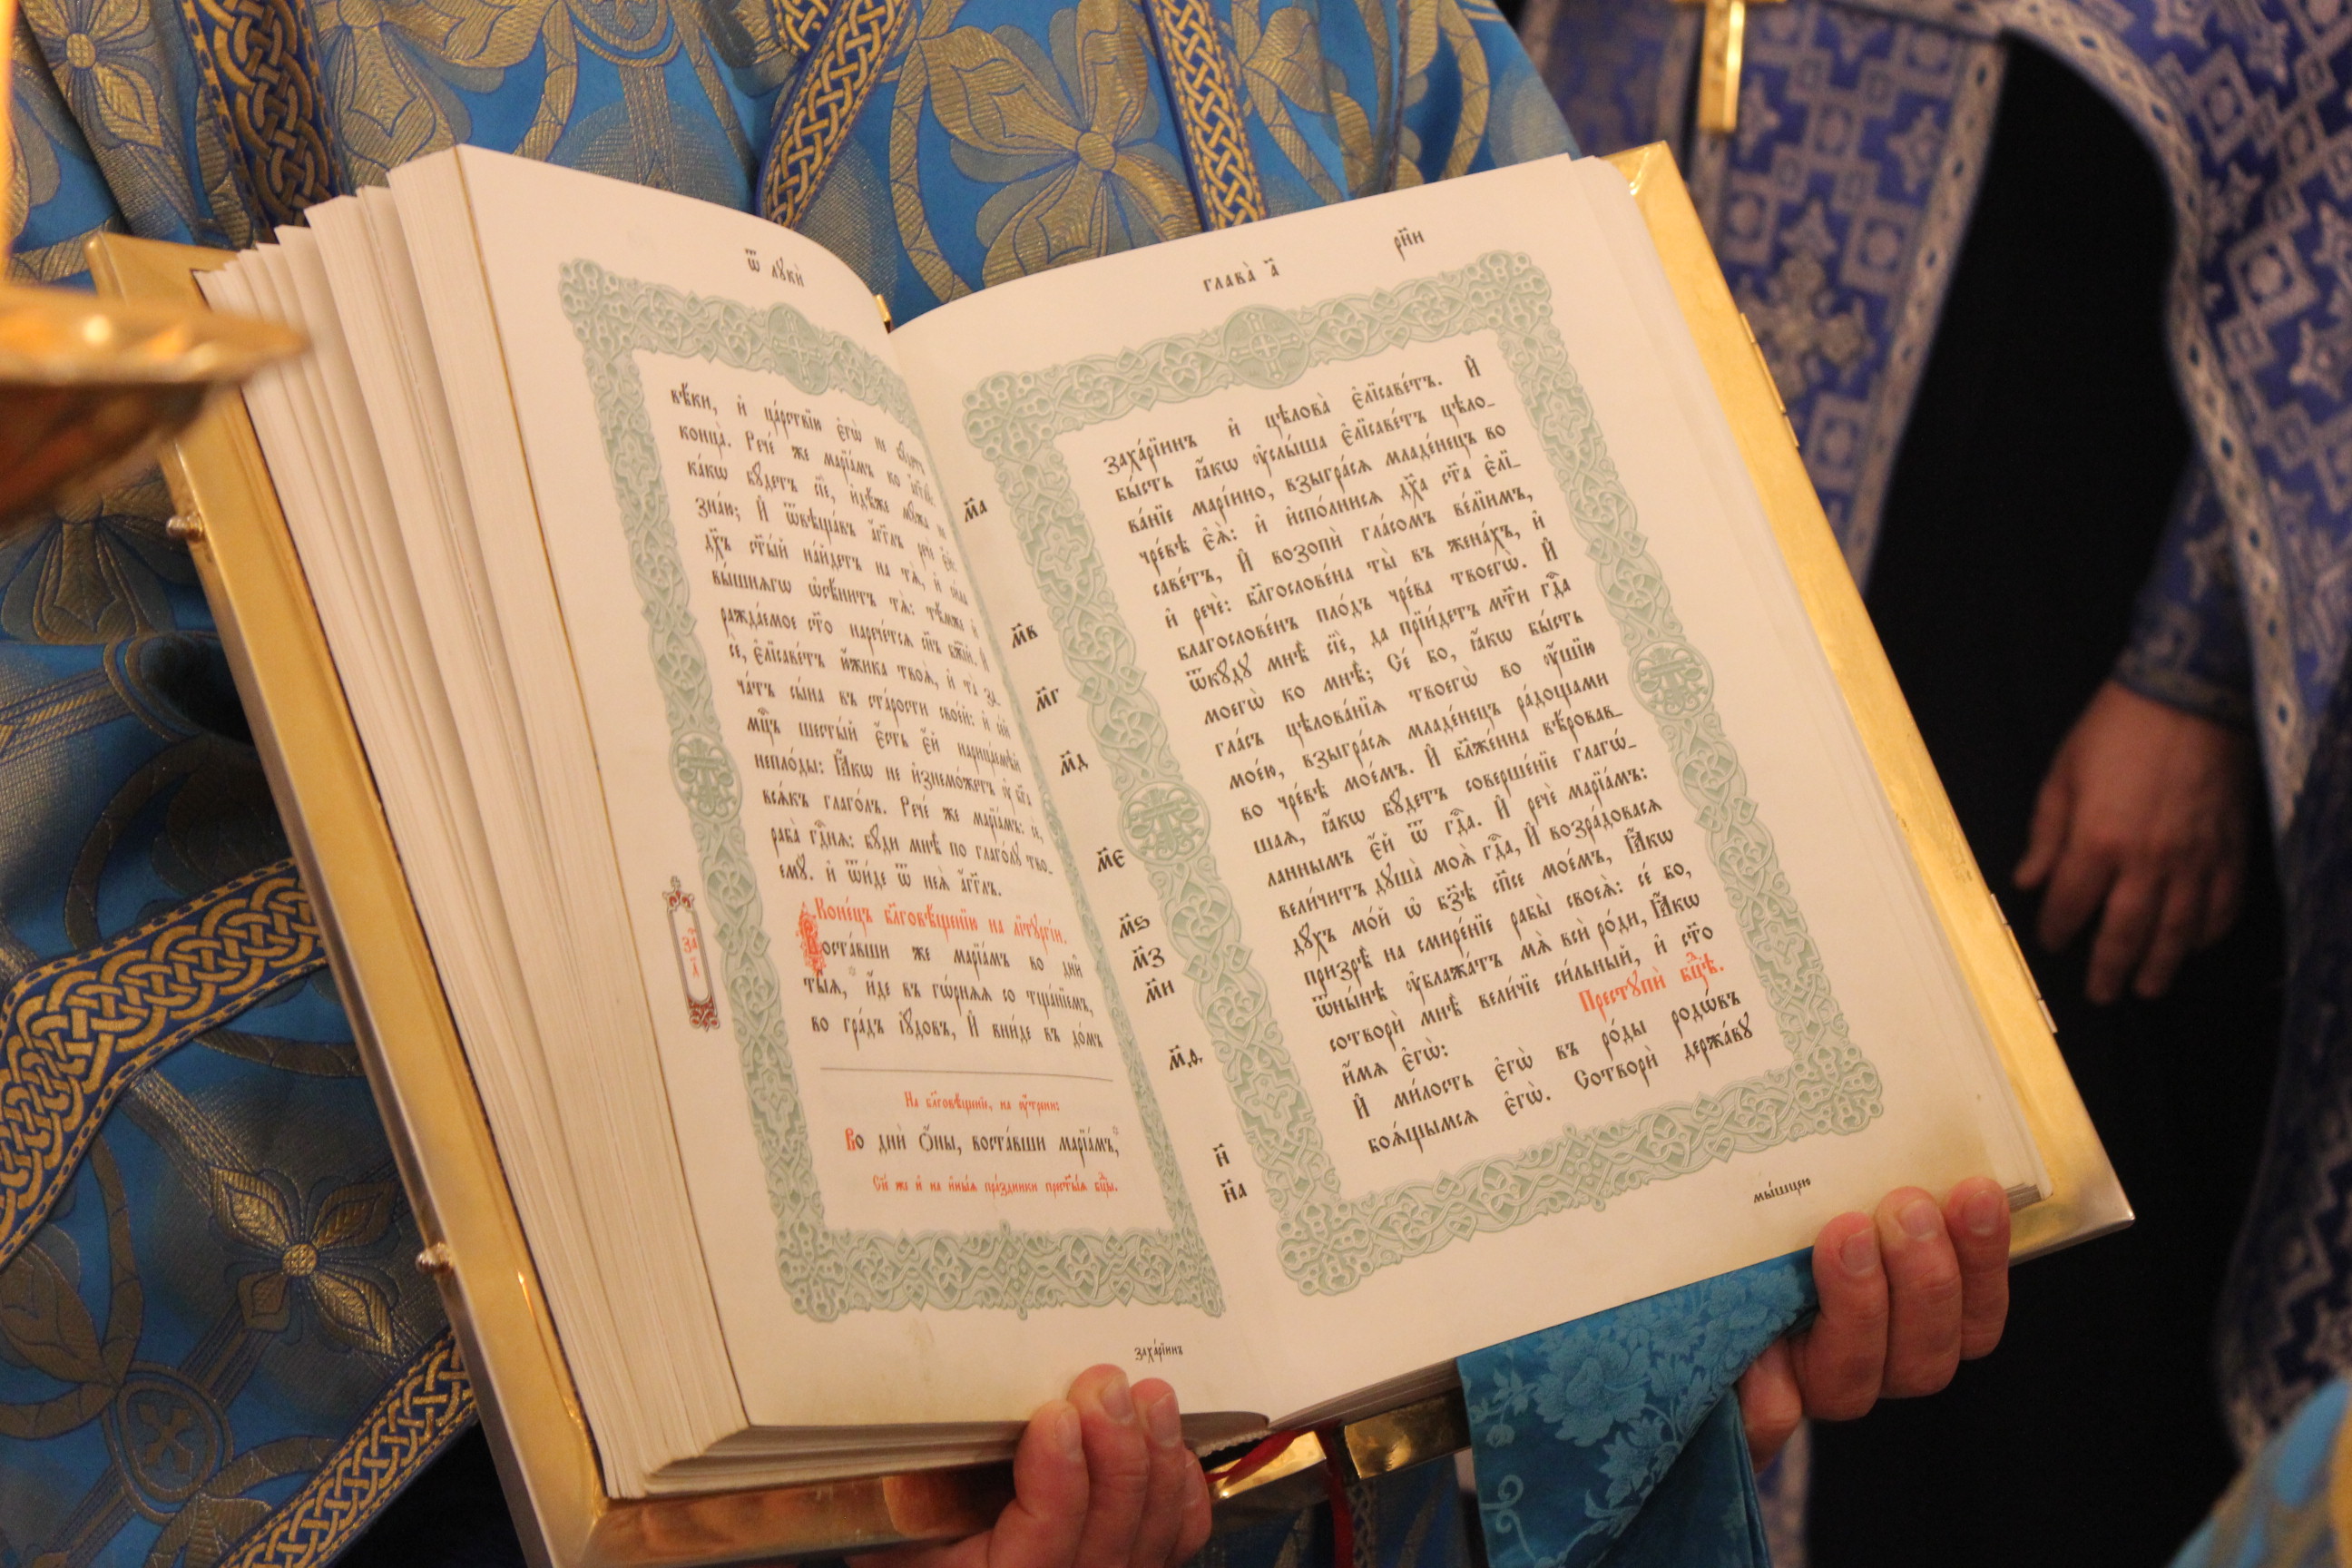 ѿ лꙋкѝ
вѣ́ки, и҆ ца́рствїю є҆гѡ̀ не бꙋ́детъ
конца̀. Рече́ же марїа́мъ ко а҆́гг҃лꙋ:
ка́кѡ бꙋ́детъ сїѐ, и҆дѣ́же мꙋ́жа не
зна́ю; И҆ ѿвѣща́въ а҆́гг҃лъ речѐ є҆́й:
дх҃ъ ст҃ы́й на́йдетъ на тѧ̀, и҆ си́ла
вы́шнѧгѡ ѡ҆сѣни́тъ тѧ̀: тѣ́мже и҆
ражда́емое ст҃о нарече́тсѧ сн҃ъ бж҃їй. И҆
сѐ, є҆лїсаве́тъ ю҆́жика твоѧ̀, и҆ та̀ за-
ча́тъ сы́на въ ста́рости свое́й: и҆ се́й
мц҃ъ шесты́й є҆́сть є҆́й нарица́емѣй
непло́ды: Ꙗ҆́кѡ не и҆знемо́жетъ ᲂу҆ бг҃а
всѧ́къ глаго́лъ. Рече́ же марїа́мъ: сѐ,
раба̀ гдⷭ҇нѧ: бꙋ́ди мнѣ̀ по глаго́лꙋ тво-
емꙋ̀. и҆ ѿи́де ѿ неѧ̀ а҆́гг҃лъ.
Коне́цъ бл҃говѣ́щенїю на лїтꙋргі́и.
Воста́вши же марїа́мъ во дни̑
ты̑ѧ, и҆́де въ гѡ́рнѧѧ со тща́нїемъ,
во гра́дъ і҆ꙋ́довъ, И҆ вни́де въ до́мъ
за҄ д҃
На бл҃говѣ́щенїе, на ᲂу҆́трени:
Во дни̑ ѻ҆́ны, воста́вши марїа́мъ,
Сїѐ же и҆ на и҆ны̑ѧ пра́здники прест҃ы́ѧ бцⷣы.
заха́рїинъ
глава̀ а҃
рн҃и
заха́рїинъ и҆ цѣлова̀ є҆лїсаве́тъ. И҆
м҃а бы́сть ꙗ҆́кѡ ᲂу҆слы́ша є҆лїсаве́тъ цѣло-
ва́нїе марі́ино, взыгра́сѧ младе́нецъ во
чре́вѣ є҆ѧ̀: и҆ и҆спо́лнисѧ дх҃а ст҃а є҆лї-
м҃в саве́тъ, И҆ возопѝ гла́сомъ ве́лїимъ,
и҆ речѐ: бл҃гослове́на ты̀ въ жена́хъ, и҆
м҃г благослове́нъ пло́дъ чре́ва твоегѡ̀. И҆
ѿкꙋ́дꙋ мнѣ̀ сїѐ, да прїи́детъ мт҃и гдⷭ҇а
м҃д моегѡ̀ ко мнѣ̀; Се́ бо, ꙗ҆́кѡ бы́сть
гла́съ цѣлова́нїѧ твоегѡ̀ во ᲂу҆́шїю
мое́ю, взыгра́сѧ младе́нецъ ра́дощами
м҃є во чре́вѣ мое́мъ. И҆ бл҃же́нна вѣ́ровав-
шаѧ, ꙗ҆́кѡ бꙋ́детъ соверше́нїе глагѡ́-
м҃ѕ ланнымъ є҆́й ѿ гдⷭ҇а. И҆ речѐ марїа́мъ:
м҃з вели́читъ дꙋша̀ моѧ̀ гдⷭ҇а, И҆ возра́довасѧ
м҃и дꙋ́хъ мо́й ѡ҆ бз҃ѣ сп҃се мое́мъ, Ꙗ҆́кѡ
призрѣ̀ на смире́нїе рабы̀ своеѧ̀: се́ бо,
м҃ѳ. ѿны́нѣ ᲂу҆блажа́тъ мѧ̀ всѝ ро́ди, Ꙗ҆́кѡ
сотворѝ мнѣ̀ вели́чїе си́льный, и҆ ст҃о
и҆́мѧ є҆гѡ̀: Престꙋпѝ бцⷣѣ.
н҃ И҆ ми́лость є҆гѡ̀ въ ро́ды родѡ́въ
н҃а боѧ́щымсѧ є҆гѡ̀. Сотворѝ держа́вꙋ
мы́шцею